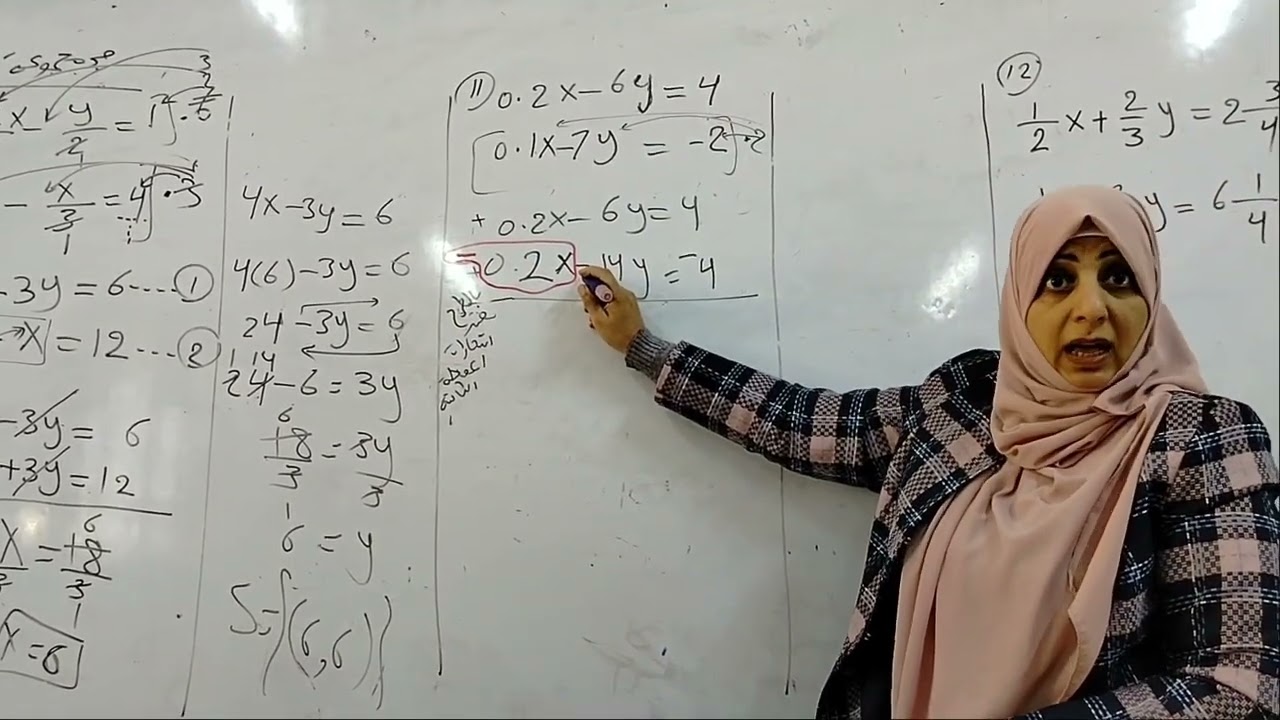 x y/2 = 1] · 2
- x/3 = 4] · 3
- 3y = 6 .... ①
x = 12 ... ②
- 3y = 6
+ 3y = 12
x = 18/3 6
x = 6
4x - 3y = 6
4(6) - 3y = 6
24 - 3y = 6
24 - 6 = 3y
18/3 = 3y/3
6 = y
S = {(6,6)}
⑪ 0.2x - 6y = 4
[0.1x - 7y = -2] · 2
+ 0.2x - 6y = 4
- 0.2x - 14y = -4
بالطرح
نغير
⑫
1/2 x + 2/3 y = 2 3/4
y = 6 1/4